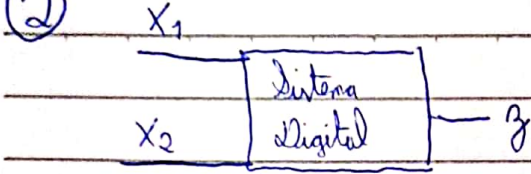 2
X1
Sistema
Digital
X2
z